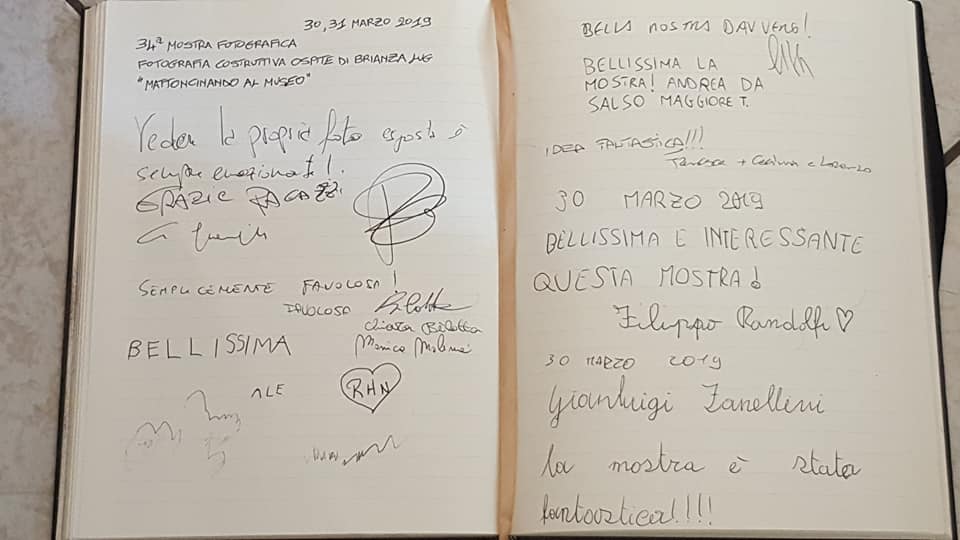 30, 31 MARZO 2019
34ª MOSTRA FOTOGRAFICA
FOTOGRAFIA COSTRUTTIVA OSPITE DI BRIANZA LUG
"MATTONCINANDO AL MUSEO"
Veder la propria foto esposta è
sempre emozionante!
GRAZIE RAGAZZI
SEMPLICEMENTE FAVOLOSA!
FAVOLOSA
Chiara Bilotta
Monica
BELLISSIMA
ALE
RHN
BELLA MOSTRA DAVVERO!
BELLISSIMA LA
MOSTRA! ANDREA DA
SALSO MAGGIORE T.
IDEA FANTASTICA!!!
30 MARZO 2019
BELLISSIMA E INTERESSANTE
QUESTA MOSTRA!
Filippo Randolfi ♡
30 MARZO 2019
Gianluigi Zanellini
la mostra è stata
fantastica!!!!